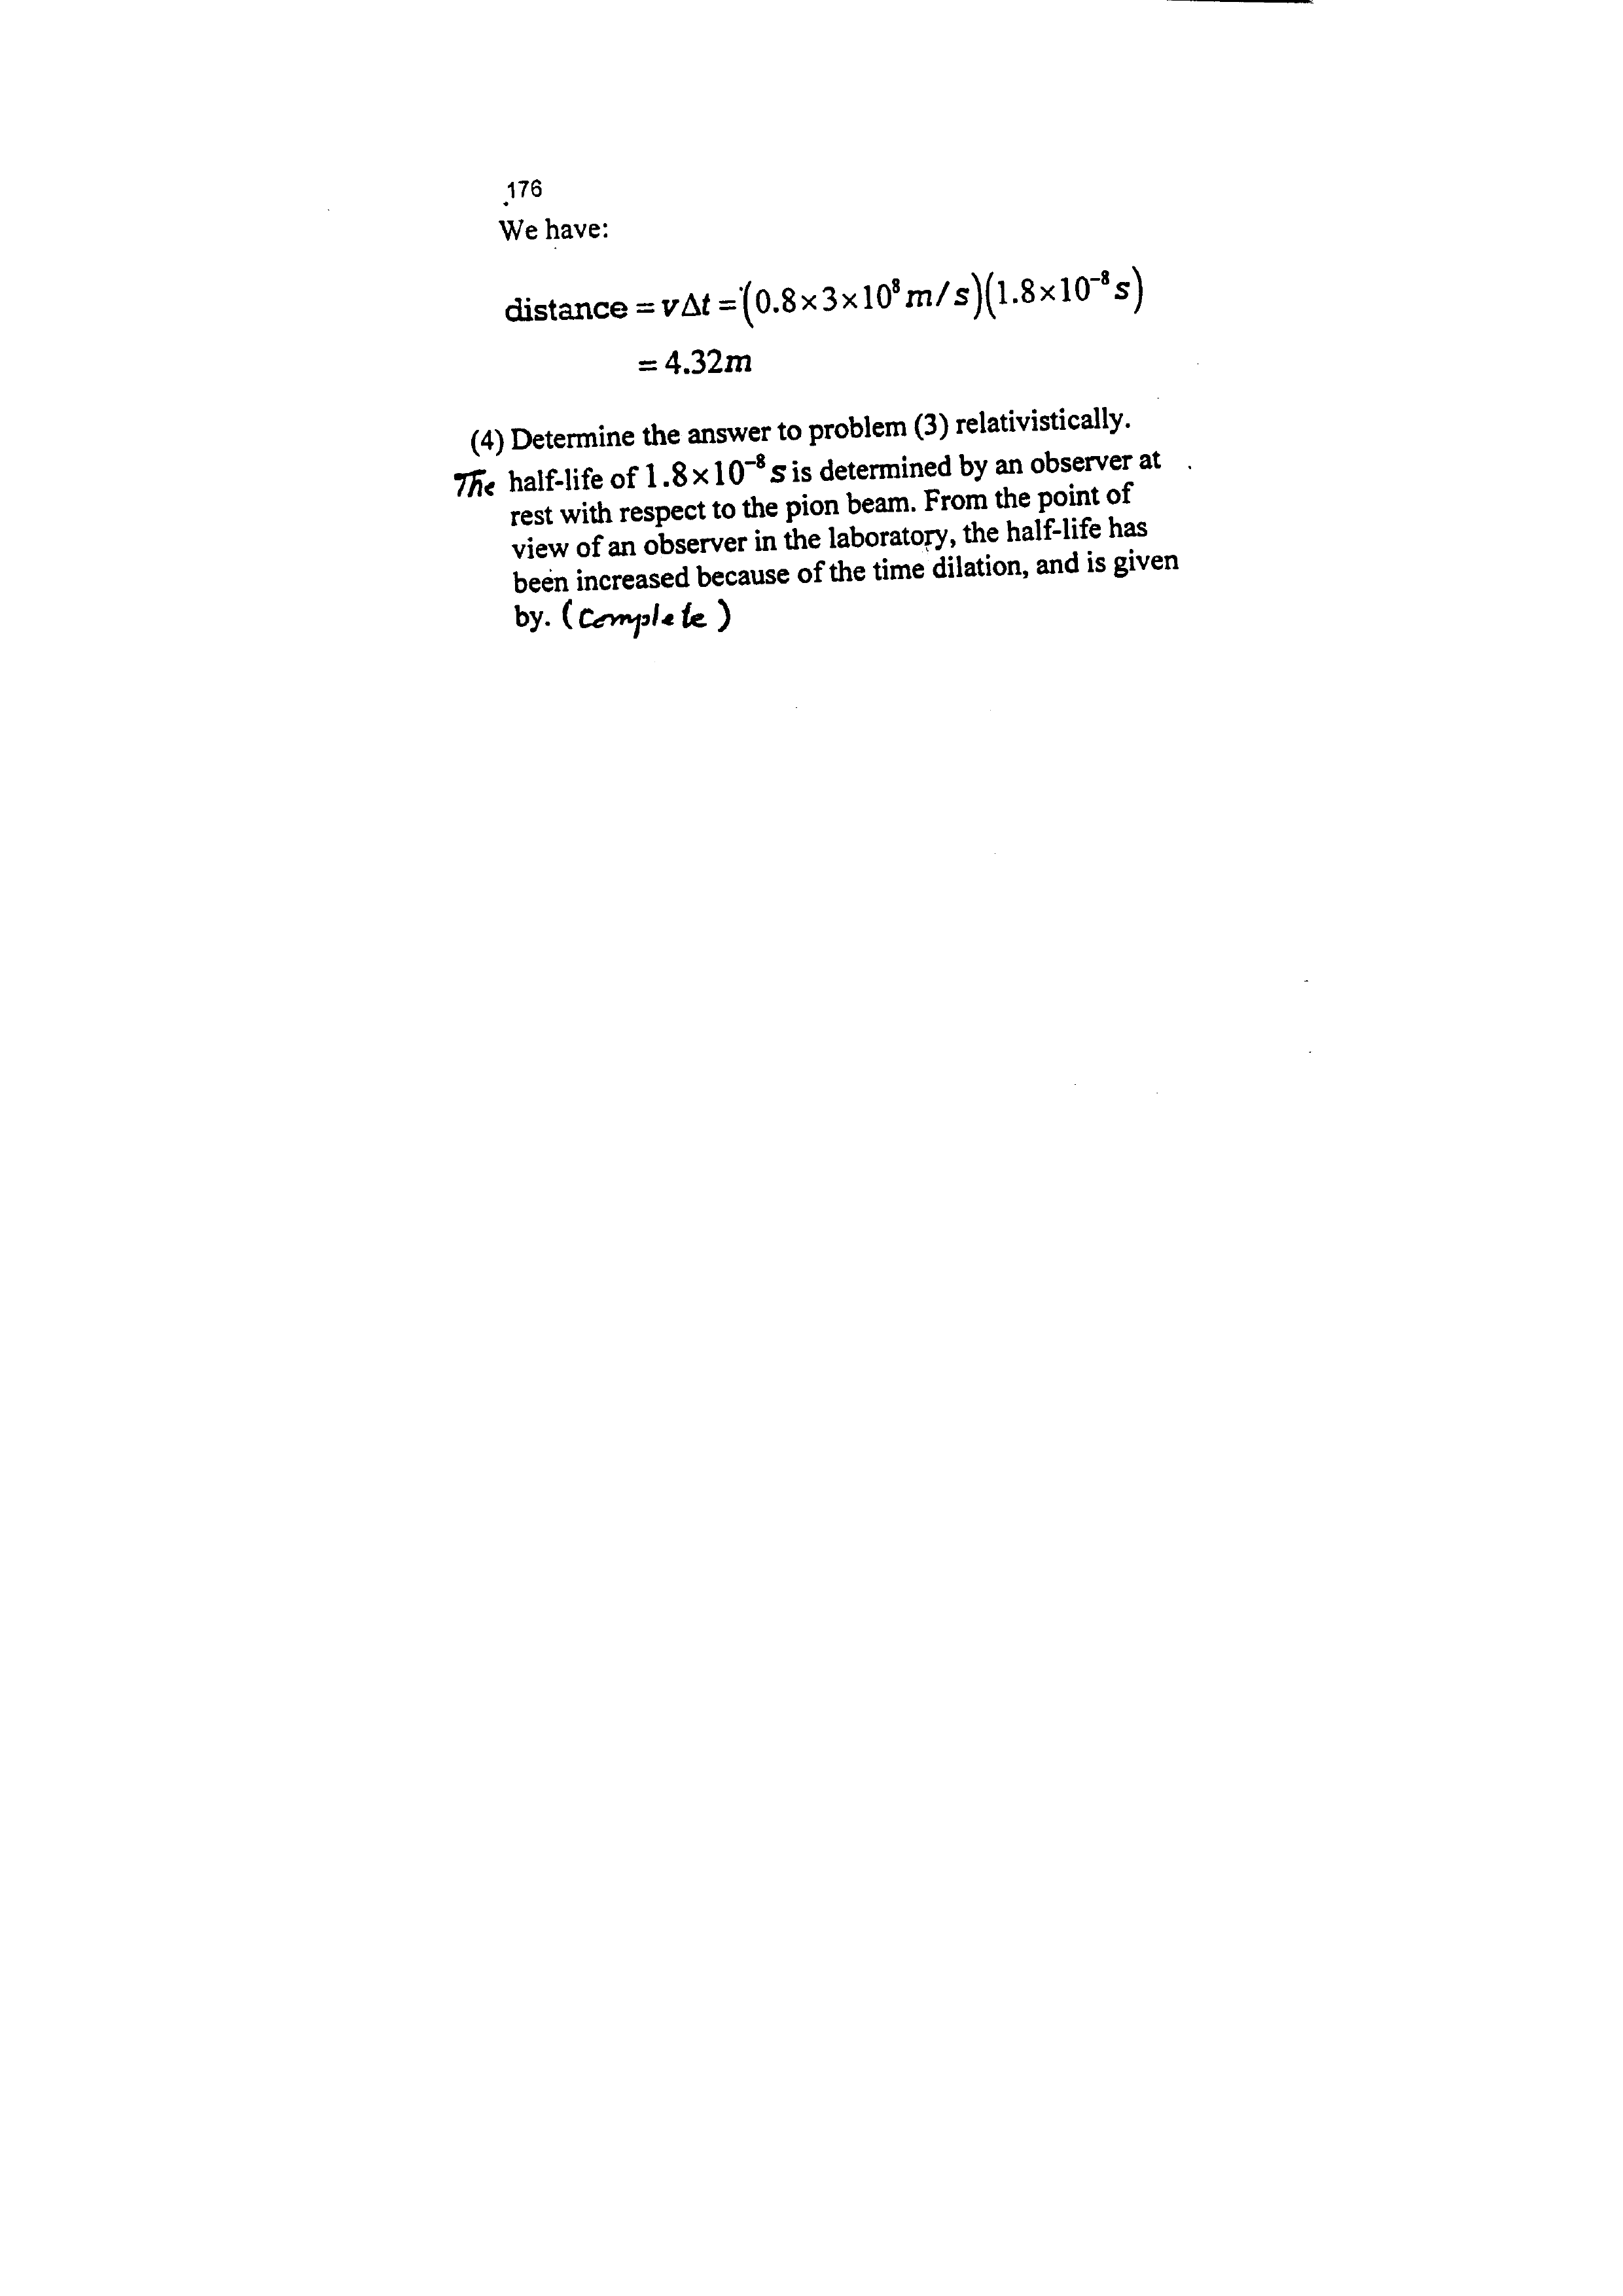 176
We have:
distance = vΔt = (0.8×3×10⁸ m/s)(1.8×10⁻⁸ s)
= 4.32m
(4) Determine the answer to problem (3) relativistically.
The half-life of 1.8×10⁻⁸ s is determined by an observer at
rest with respect to the pion beam. From the point of
view of an observer in the laboratory, the half-life has
been increased because of the time dilation, and is given
by. (Complete)